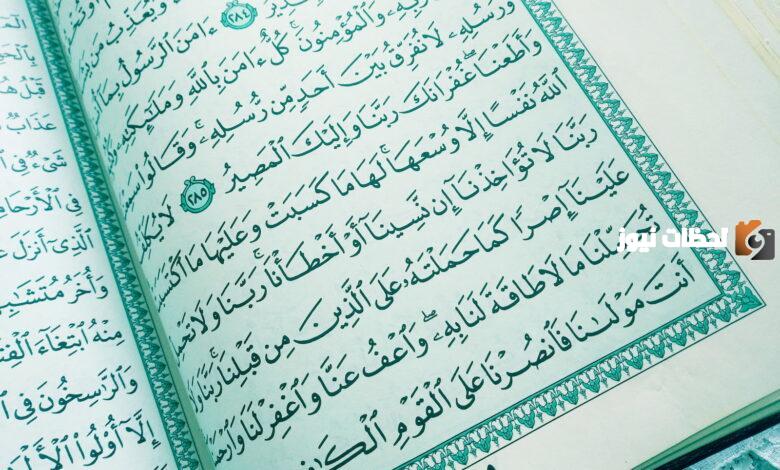 وَيُعَذِّبُ مَن
٢٨٤ ءَامَنَ ٱلرَّسُولُ بِمَآ
وَٱلْمُؤْمِنُونَ ۚ كُلٌّ ءَامَنَ بِٱللَّهِ وَمَلَٰٓئِكَتِهِۦ
وَرُسُلِهِۦ لَا نُفَرِّقُ بَيْنَ أَحَدٍ مِّن رُّسُلِهِۦ ۚ وَقَالُوا۟
وَأَطَعْنَا ۖ غُفْرَانَكَ رَبَّنَا وَإِلَيْكَ ٱلْمَصِيرُ ٢٨٥ لَا
ٱللَّهُ نَفْسًا إِلَّا وُسْعَهَا ۚ لَهَا مَا كَسَبَتْ وَعَلَيْهَا مَا
رَبَّنَا لَا تُؤَاخِذْنَآ إِن نَّسِينَآ أَوْ أَخْطَأْنَا ۚ رَبَّنَا وَلَا
عَلَيْنَآ إِصْرًا كَمَا حَمَلْتَهُۥ عَلَى ٱلَّذِينَ مِن قَبْلِنَا ۚ رَبَّنَا
تُحَمِّلْنَا مَا لَا طَاقَةَ لَنَا بِهِۦ ۖ وَٱعْفُ عَنَّا وَٱغْفِرْ لَنَا
أَنتَ مَوْلَىٰنَا فَٱنصُرْنَا عَلَى ٱلْقَوْمِ
لحظات نيوز
عَذَابٌ
شَىْءٌ فِى
فِى ٱلْأَرْحَامِ
ٱلَّذِىٓ أَنزَلَ
وَأُخَرُ
مِنْهُ ٱبْتِغَآءَ
وَٱلرَّٰسِخُونَ فِى
إِلَّآ أُو۟لُوا۟